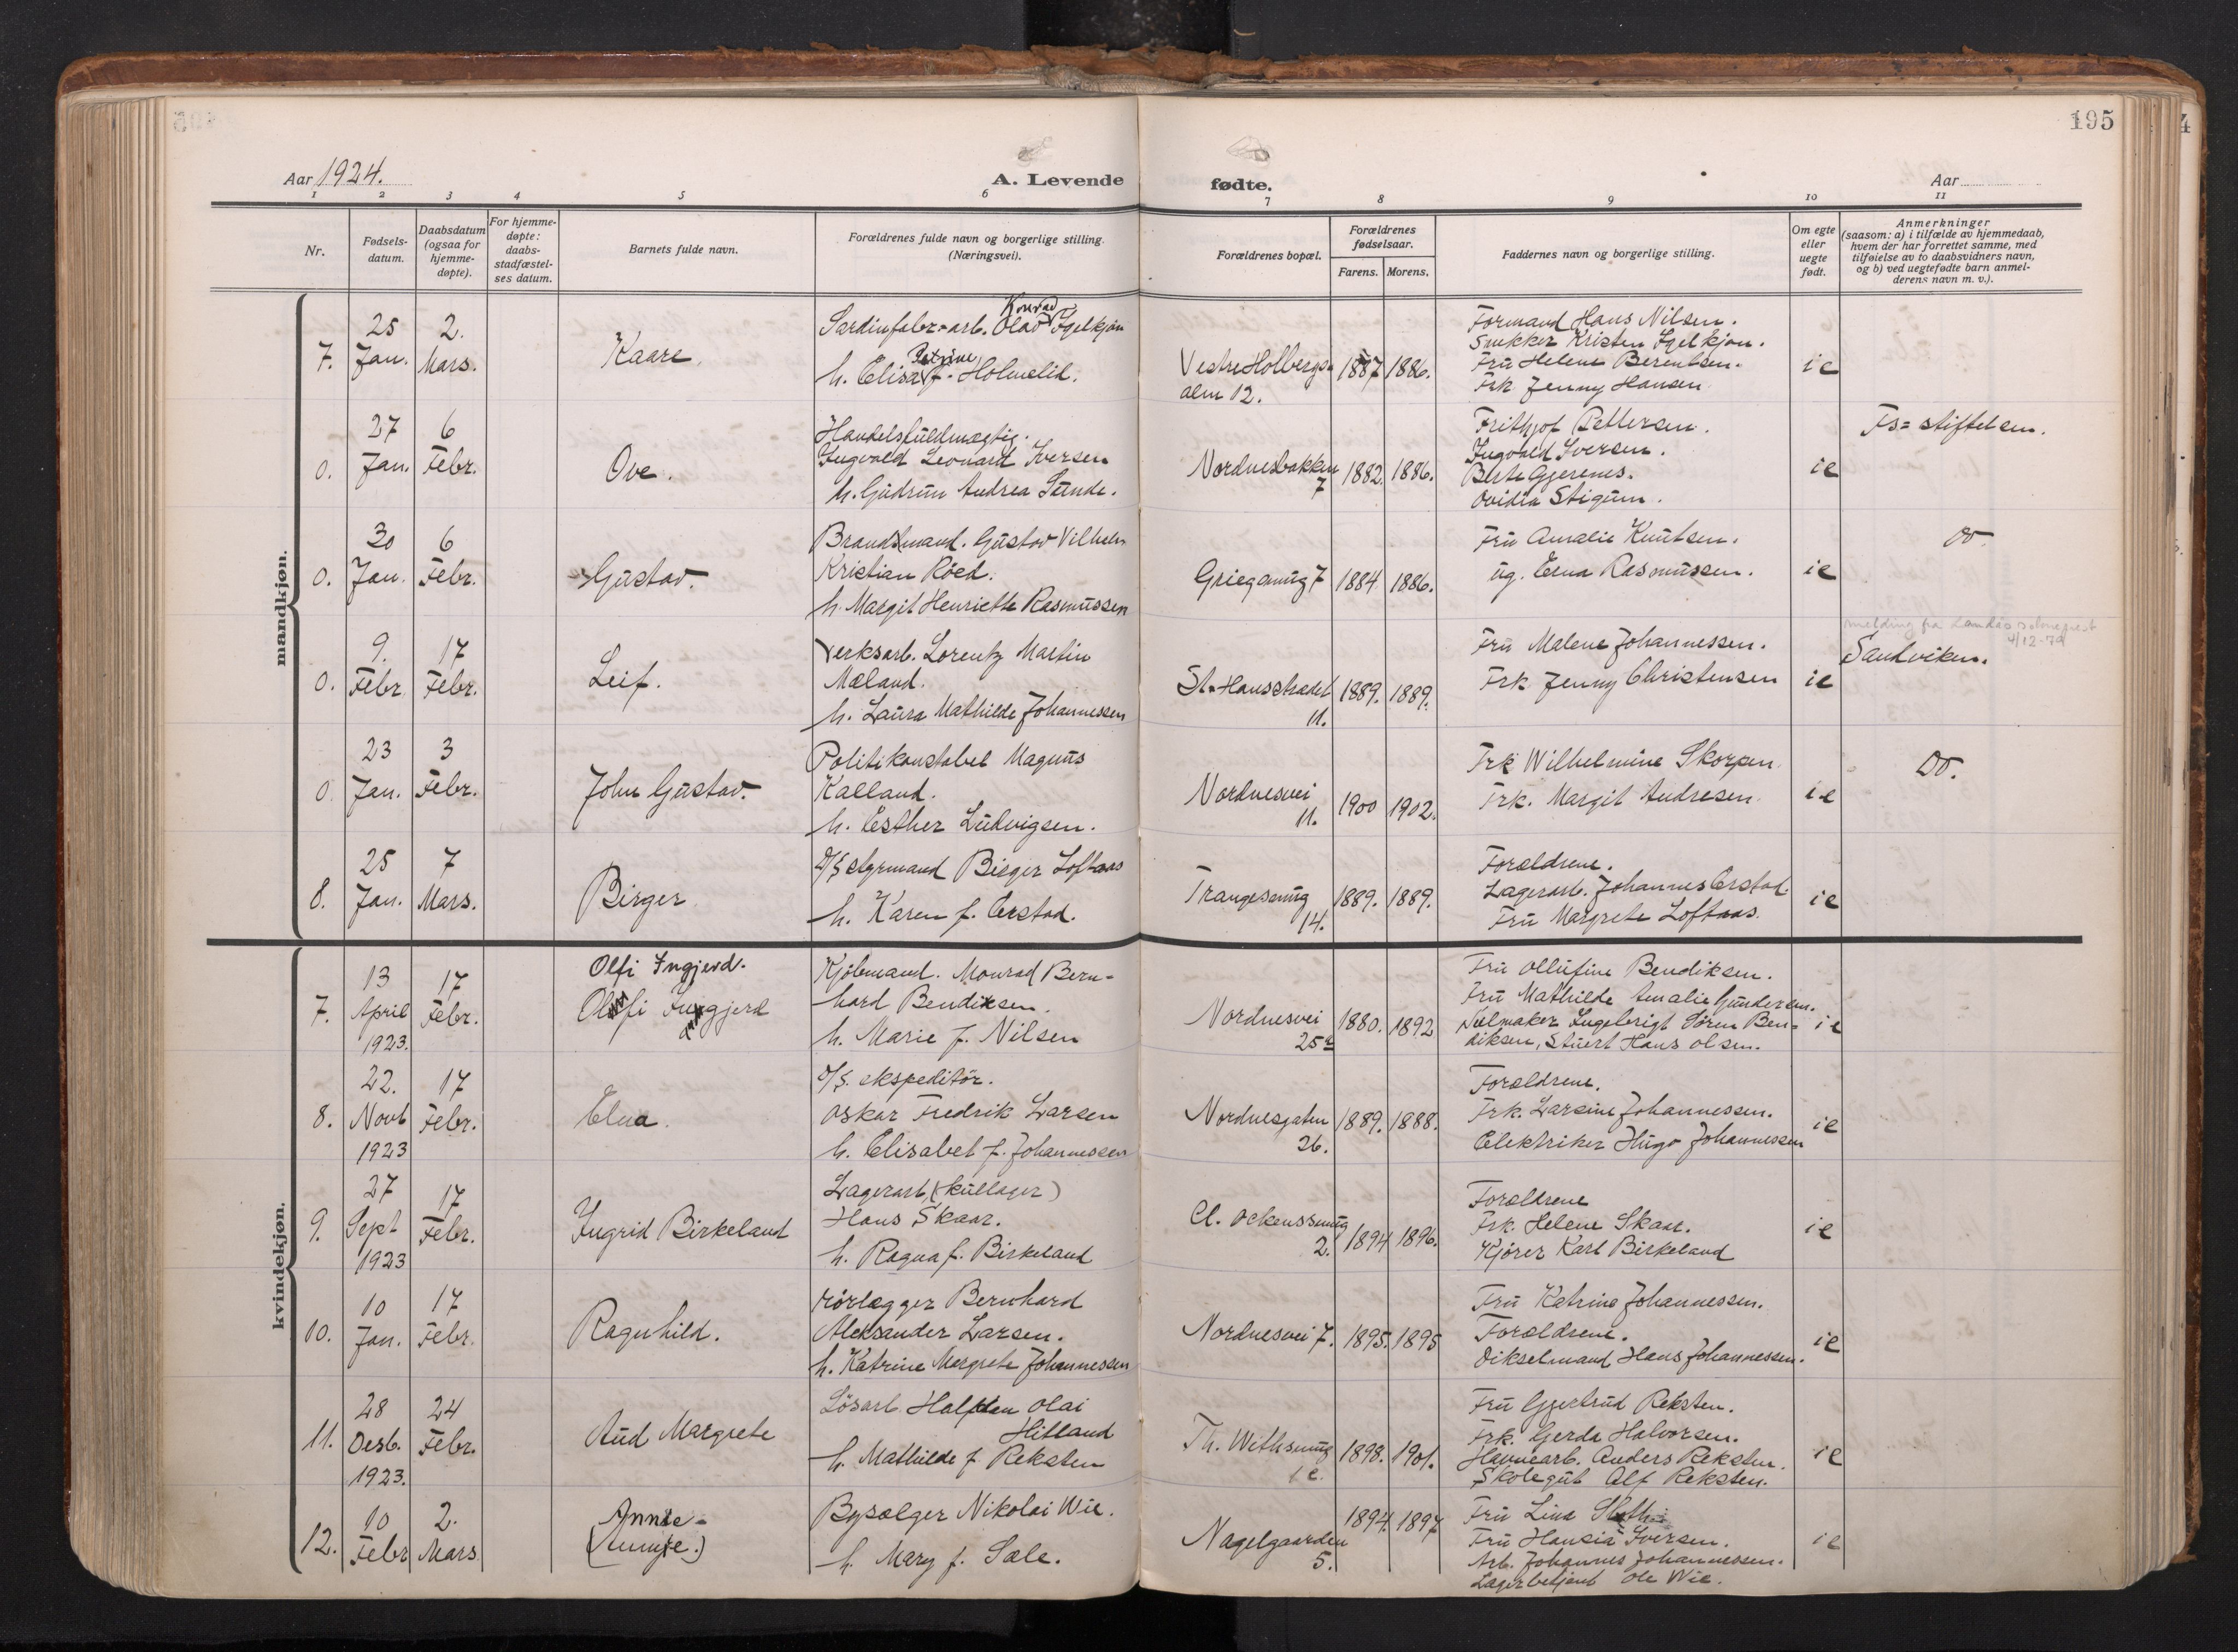 195
Aar 1924.
A. Levende
fødte.
Aar
1 2 3 4 5 6 7 8 9 10 11
Nr.
Fødsels-
datum.
Daabsdatum
(ogsaa for
hjemme-
døpte).
For hjemme-
døpte:
daabs-
stadfæstel-
ses datum.
Barnets fulde navn.
Forældrenes fulde navn og borgerlige stilling.
(Næringsvei).
Forældrenes bopæl.
Forældrenes
fødselsaar.
Farens. Morens.
Faddernes navn og borgerlige stilling.
Om egte
eller
uegte
født.
Anmerkninger
(saasom: a) i tilfælde av hjemmedaab,
hvem der har forrettet samme, med
tilføielse av to daabsvidners navn,
og b) ved uegtefødte barn anmel-
derens navn m. v.).
mandkjøn.
7.
25
Jan.
2.
Mars.
Kaare.
Konrad
Sardinfabr.arb. Olav Igelkjøn
Petrine
h. Elisa f. Holmelid.
Vestre Holbergs-
alm 12.
1887 1886.
Formand Hans Nilsen.
Snekker Kristen Igelkjøn.
Fru Helene Berentsen.
Frk Jenny Hansen
ie
0.
27
Jan.
6
Febr.
Ove.
Handelsfuldmægtig.
Ingvald Leonard Iversen
h. Gudrun Andrea Sunde.
Nordnesbakken
7
1882. 1886.
Frithjof Pettersen.
Ingvald Iversen.
Berte Gjerenes.
Ovidia Stigum.
ie
Fs= stiftelsen.
0.
30
Jan.
6
Febr.
Gustav.
Brandmand. Gustav Vilhelm
Kristian Röed.
h. Margit Henriette Rasmussen
Griegsmug 7
1884 1886.
Fru Amalie Knutsen.
ug. Erna Rasmussen.
ie
Do.
0.
9.
Febr
17
Febr.
Leif.
Verksarb. Lorentz Martin
Mæland.
h. Laura Mathilde Johannessen
St. Hansstrædet
11.
1889. 1889.
Fru Malene Johannessen.
Frk Jenny Christensen
ie
melding fra Landås sokneprest
4/12-79
Sandviken.
0
23
Jan.
3
Febr.
John Gustav.
Politikonstabel Magnus
Kalland.
h. Esther Ludvigsen.
Nordnesvei
11.
1900 1902.
Frk Wilhelmine Skorpen
Frk. Margit Andresen
ie
Do.
8.
25
Jan.
7
Mars.
Birger
D/S styrmand Birger Loftaas
h. Karen f. Erstad.
Trangesmug
14.
1889. 1889.
Forældrene.
Lagerarb. Johannes Erstad.
Fru Margrete Loftaas.
ie
kvindekjøn.
7.
13
April
1923.
17
Febr.
Olfi Ingjerd.
Kjöbmand. Monrad Bern-
hard Bendiksen.
h. Marie f. Nilsen
Nordnesvei
25a
1880. 1892
Fru Ollufine Bendiksen.
Fru Mathilde Amalie Gundersen.
Seilmaker Ingebrigt Sören Ben-
diksen, Stuert Hans Olsen.
ie
8.
22.
Novb
1923
17
Febr.
Elna.
D/S. ekspeditör.
Oskar Fredrik Larsen
h. Elisabet f. Johannessen
Nordnesgaten
26.
1889. 1888.
Forældrene.
Frk. Larsine Johannessen.
Elektriker Hugo Johannessen
ie
9.
27
Sept
1923
17
Febr.
Ingrid Birkeland
Lagerarb. (kullager)
Hans Skaar.
h. Ragna f. Birkeland
Cl. Ockenssmug
2.
1894 1896.
Forældrene
Frk. Helene Skaar.
Kjörer Karl Birkeland
ie
10.
10
Jan.
17
Febr.
Ragnhild.
rörlegger Bernhard
Aleksander Larsen.
h. Katrine Margrete Johannessen
Nordnesvei 7.
1895. 1895
Fru Katrine Johannessen.
Forældrene.
Dikselmand Hans Johannessen.
ie
11.
28
Desb.
1923.
24
Febr.
Aud Margrete
Lösarb. Halfdan Olai
Hitland
h. Mathilde f. Reksten
Th. Withsmug
1c.
1898. 1901.
Fru Gjertrud Reksten.
Frk. Gerda Halvorsen.
Havnearb. Anders Reksten.
Skolegut Alf Reksten.
ie
12.
10
Febr
2.
Mars.
Annie
Bysælger Nikolai Wie.
h. Mary f. Sale.
Nagelgaarden
5.
1894. 1897
Fru Lina
Fru Hansia Iversen.
Arb. Johannes Johannessen.
Lagerbetjent Ole Wie.
ie